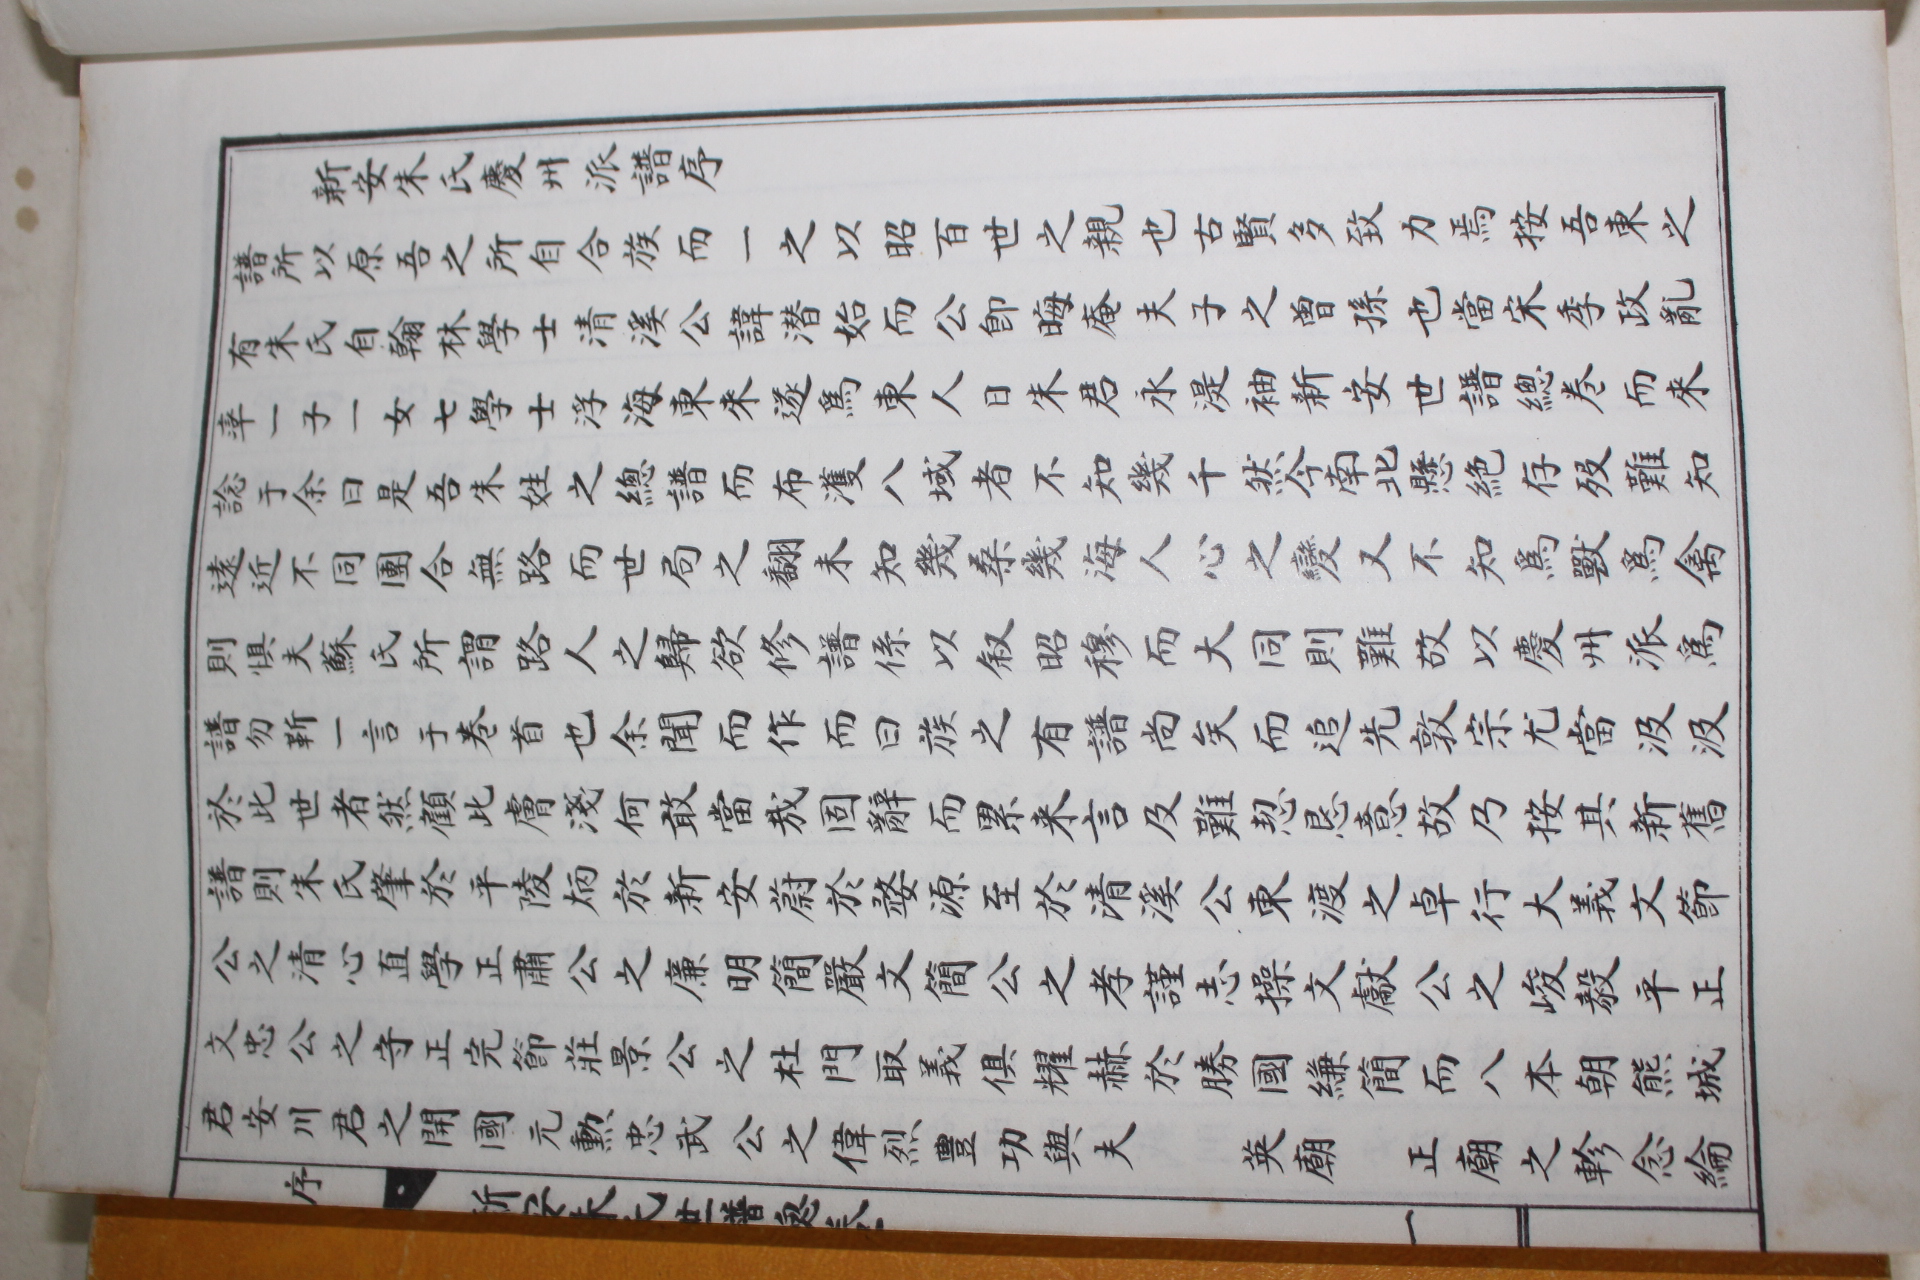 新安朱氏慶州派譜序
譜所以原吾之所自合族而一之以昭百世之親也古賢多致力焉按吾東之
有朱氏自翰林學士清溪公諱潜始而公卽晦庵夫子之曾孫也當宋季政亂
率一子一女七學士浮海東来遂爲東人日朱君永湜袖新安世譜總卷而來
諗于余曰是吾朱姓之總譜而布濩八域者不知幾千然今南北懸絶存歿難知
遠近不同團合無路而世局之翻未知幾桑幾海人心之變又不知爲獸爲禽
則惧夫蘇氏所謂路人之歸欲修譜係以叙昭穆而大同則難故以慶州派爲
譜勿靳一言于卷首也余聞而作而曰族之有譜尚矣而追先敦宗尤當汲汲
於此世者然顧此膚淺何敢當哉固辭而累来言及難恝恳意故乃按其新舊
譜則朱氏肇於平陵炳於新安蔚於婺源至於清溪公東渡之卓行大義文節
公之清心直學正肅公之廉明簡嚴文簡公之孝謹志操文獻公之峻毅平正
文忠公之守正完節莊景公之杜門取義俱耀赫於勝國縑簡而八本朝熊城
君安川君之開國元勲忠武公之偉烈豊功與夫 英廟 正廟之軫念綸
序
新安朱氏世譜總
一